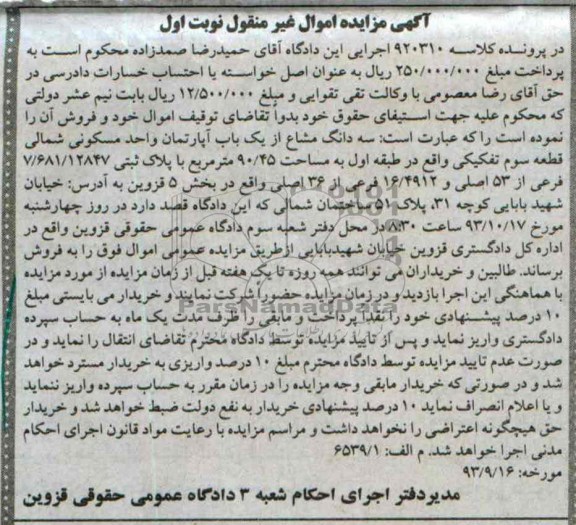 آگهی مزایده اموال غیر منقول نوبت اول
در پرونده کلاسه ۹۲۰۳۱۰ اجرایی این دادگاه آقای حمیدرضا صمدزاده محکوم است به
پرداخت مبلغ ۲۵۰/۰۰۰/۰۰۰ ریال به عنوان اصل خواسته با احتساب خسارات دادرسی در
حق آقای رضا معصومی با وکالت تقی تقوایی و مبلغ ۱۲/۵۰۰/۰۰۰ ریال بابت نیم عشر دولتی
که محکوم علیه جهت استیفای حقوق خود بدوا تقاضای توقیف اموال خود و فروش آن را
نموده است را که عبارت است: سه دانگ مشاع از یک باب آپارتمان واحد مسکونی شمالی
قطعه سوم تفکیکی واقع در طبقه اول به مساحت ۹۰/۴۵ مترمربع با پلاک ثبتی ۷/۶۸۱/۱۲۸۴۷
فرعی از ۵۳ اصلی و ۱۶/۴۹۱۲ فرعی از ۳۶ اصلی واقع در بخش ۵ قزوین به آدرس: خیابان
شهید بابایی کوچه ۳۱، پلاک ۵۱ ساختمان شمالی که این دادگاه قصد دارد در روز چهارشنبه
مورخ ۹۳/۱۰/۱۷ ساعت ۸:۳۰ در محل دفتر شعبه سوم دادگاه عمومی حقوقی قزوین واقع در
اداره کل دادگستری قزوین خیابان شهیدبابایی ازطریق مزایده عمومی اموال فوق را به فروش
برساند. طالبین و خریداران می توانند همه روزه تا یک هفته قبل از زمان مزایده از مورد مزایده
با هماهنگی این اجرا بازدید و در زمان مزایده حضورا شرکت نمایند و خریدار می بایستی مبلغ
۱۰ درصد پیشنهادی خود را نقدا پرداخت و مابقی را ظرف مدت یک ماه به حساب سپرده
دادگستری واریز نماید و پس از تایید مزایده توسط دادگاه محترم تقاضای انتقال را نماید و در
صورت عدم تایید مزایده توسط دادگاه محترم مبلغ ۱۰ درصد واریزی به خریدار مسترد خواهد
شد و در صورتی که خریدار مابقی وجه مزایده را در زمان مقرر به حساب سپرده واریز ننماید
و یا اعلام انصراف نماید ۱۰ درصد پیشنهادی خریدار به نفع دولت ضبط خواهد شد و خریدار
حق هیچگونه اعتراضی را نخواهد داشت و مراسم مزایده با رعایت مواد قانون اجرای احکام
مدنی اجرا خواهد شد. م الف: ۶۵۳۹/۱
مورخه: ۹۳/۹/۱۶
مدیردفتر اجرای احکام شعبه ۳ دادگاه عمومی حقوقی قزوین
ParsNamadData